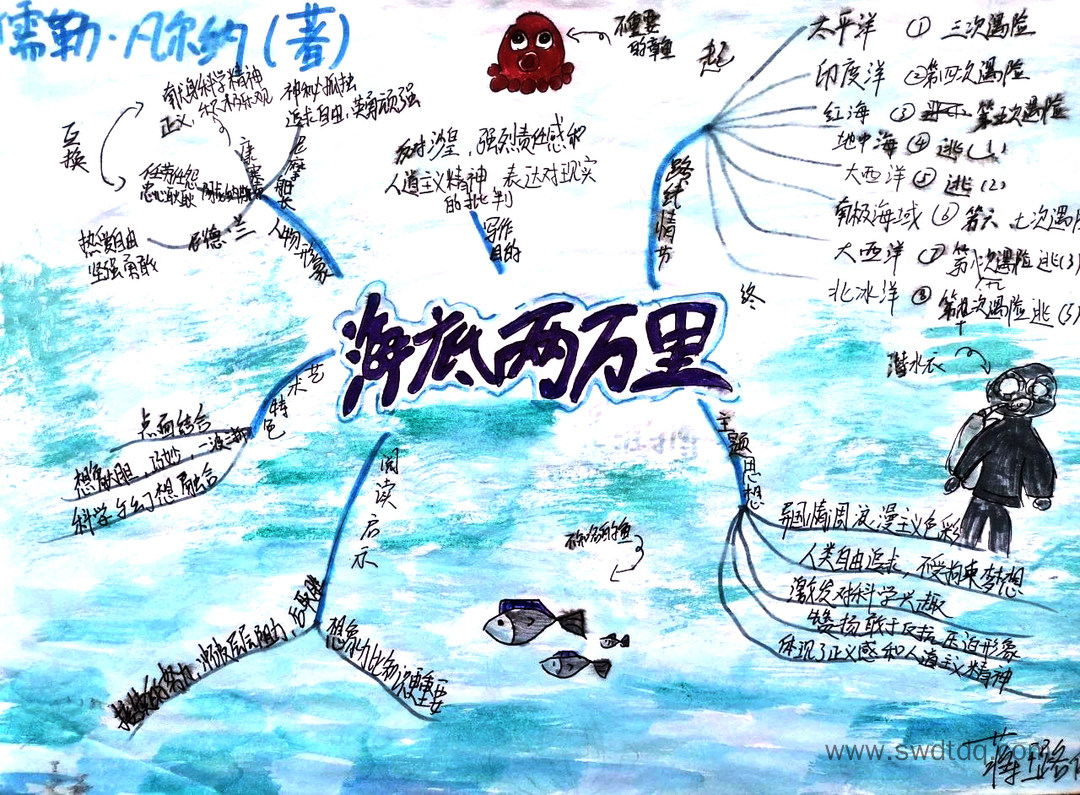 儒勒·凡尔纳(著)
不重要
的章鱼
起
太平洋 ① 三次遇险
印度洋 ②第四次遇险
红海 ③ 第五次遇险
地中海 ④ 逃(1)
大西洋 ⑤ 逃(2)
南极海域 ⑥ 第六、七次遇险
大西洋 ⑦ 第八次遇险 逃(3)
北冰洋 ⑧ 第九次遇险 逃(5)
十
终
路线情节
互换
科学精神
正义,
神秘 孤独
追求自由,英勇顽强
尼摩船长
康塞
任劳任怨
忠心耿耿
热爱自由
坚强勇敢
尼德·兰
人物形象
反对沙皇,强烈责任感和
人道主义精神 表达对现实
的批判
写作
目的
海底两万里
潜水衣
艺术特色
点面结合
想象大胆,巧妙,一波三折
科学与幻想融合
阅读启示
层层阻力,
想象力比知识更重要
不知名的鱼
主题思想
异国情调浪漫主义色彩
人类自由追求,不受拘束梦想
激发对科学兴趣
赞扬敢于反抗压迫形象
体现了正义感和人道主义精神
www.swdtdq.com
蒋